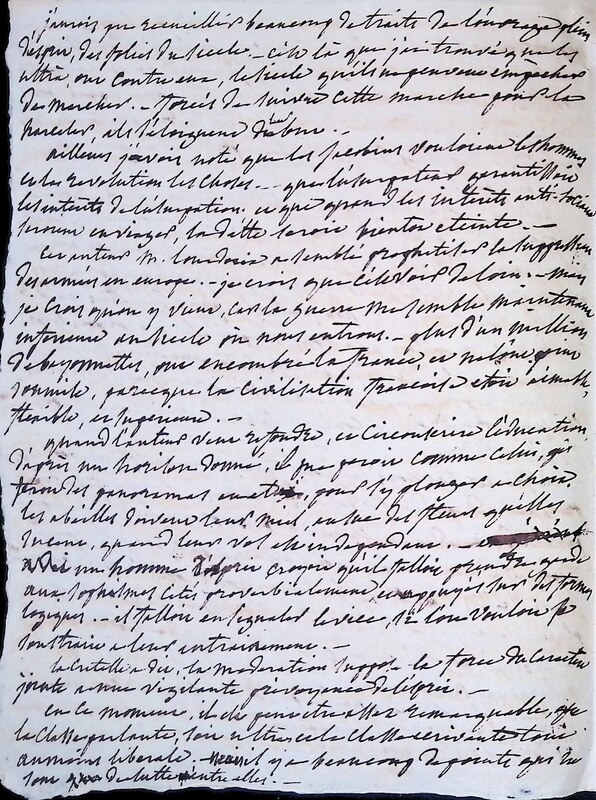 j'aurois pu recueillir beaucoup de traits de l'ouvrage plein
d'esprit, des folies du siecle. - c'est là que j'ai trouvé que les
ultra, ont contre eux, le siecle qu'ils ne peuvent empêcher
de marcher. - forcés de suivre cette marche pour la
harceler, ils s'éloignent d'ou
ailleurs j'avois noté que les jacobins vouloient les hommes
et la revolution les choses - que l'usurpateur garantissoit
les interets de l'usurpation, et que quand les interêts anti-sociaux
seroient envisagés, la dette seroit bientot eteinte. -
Cet auteur M. a semblé prophetiser la suppression
des armées en europe. - je crois que c'est voir de loin. - mais
je crois qu'on y vient, car la guerre me semble maintenant
inferieure au siecle où nous entrons. - plus d'un million
de bayonnettes, ont encombré la france, et ne l'ont point
soumise, parceque la civilisation françoise etoit aimable,
flexible, et superieure. -
quand l'auteur veut refondre, et circonscrire l'éducation,
d'après un horison donné, il me paroit comme celui, qui
feroit des panoramas pour s'y plonger a choix
les abeilles doivent leur miel, au suc des fleurs qu'elles
sucent, quand leur vol est independant. -
a dit un homme d'esprit croyoit qu'il falloit prendre garde
aux sophismes cités proverbialement, et appuyés sur des formes
logiques. - il falloit en signaler le vice, si l'on vouloit se
soustraire a leur entrainement. -
la Cretelle a dit, la moderation suppose la force du caractere
jointe a une vigilante prévoyance de l'esprit. -
en ce moment, il est peut etre assez remarquable, que
la classe parlante, soit ultra, et la classe ecrivante toute
au moins liberale. - mais il y a beaucoup de points qui ne
sont que de lutte entre elles. -